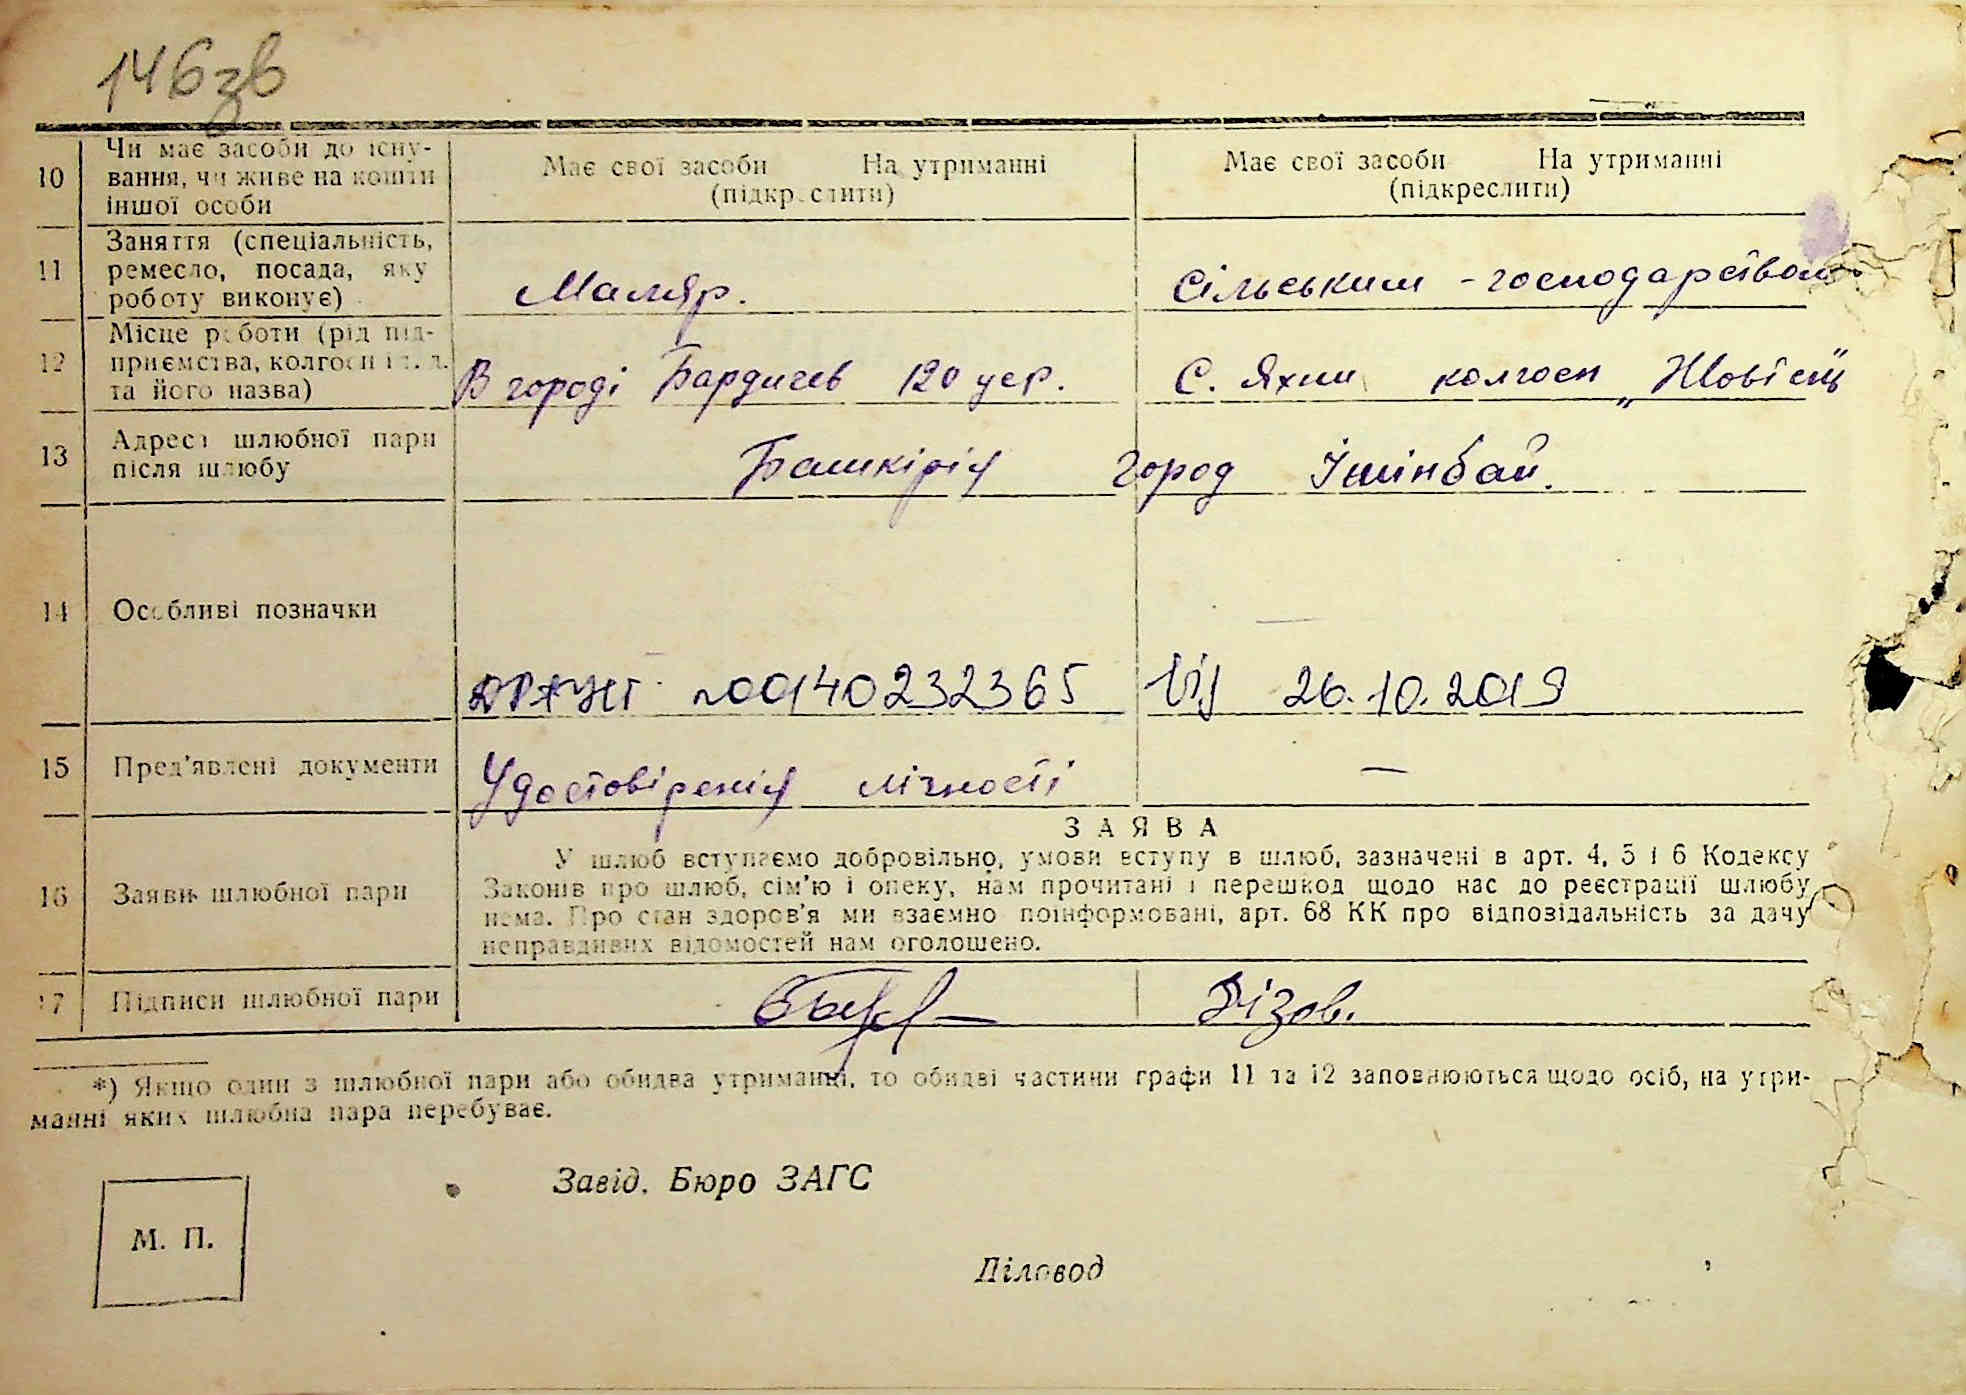 146зв
10 Чи має засоби до існу-
вання, чи живе на кошти
іншої особи
Має свої засоби На утриманні
(підкреслити)
Має свої засоби На утриманні
(підкреслити)
11 Заняття (спеціальність,
ремесло, посада, яку
роботу виконує)
Маляр.
Сільським - господарством
12 Місце роботи (рід під-
приємства, колгосп і т. д.
та його назва)
В городі Бардичев 120 уер.
С. Яхни колгосп „Жовтень"
13 Адреса шлюбної пари
після шлюбу
Башкірія город Ішінбай.
14 Особливі позначки
ДРАЦСГ №00140232365 Від 26.10.2019
15 Пред'явлені документи
Удостовіренія лічності —
16 Заява шлюбної пари
ЗАЯВА
У шлюб вступаємо добровільно, умови вступу в шлюб, зазначені в арт. 4, 5 і 6 Кодексу
Законів про шлюб, сім'ю і опеку, нам прочитані і перешкод щодо нас до реєстрації шлюбу
нема. Про стан здоров'я ми взаємно поінформовані, арт. 68 КК про відповідальність за дачу
неправдивих відомостей нам оголошено.
17 Підписи шлюбної пари
Різов.
*) Якщо один з шлюбної пари або обидва утриманці, то обидві частини графи 11 та 12 заповнюються щодо осіб, на утри-
манні яких шлюбна пара перебуває.
Завід. Бюро ЗАГС
М. П.
Діловод